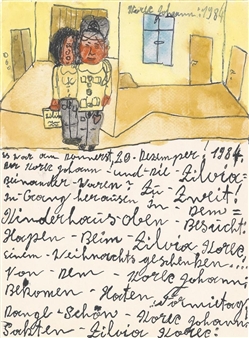 Korec Johann: 1984
es war am Donnerst, 20 - Dezemper! 1984.
Der Korec Johann - und - die - Zilvia =
Beinander - Waren? Zu - Zweit!
In - Grang heraisen In - Dem =
Hinderhais - oben - Besucht:
Hapen - Beim - Zilvia Korec
einem - Weihnachts geschenken...!
Von - Dem - Korec Johann:
Bekomen - Haten
Dange - Schön - Korec Johann:
Sakten - Zilvia Korec: